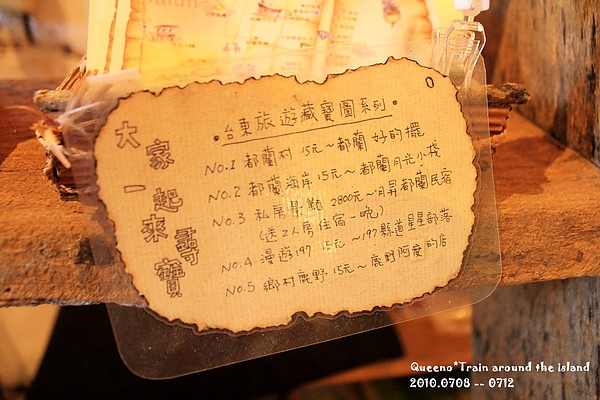 大家一起來尋寶
•台東旅遊藏寶圖系列•
No.1 都蘭村 15元~都蘭 好的擺
No.2 都蘭海岸15元~都蘭月光小棧
No.3 私房景點 2800元~月昇都蘭民宿
(送2人房住宿一晚)
No.4 漫遊197 15元~197縣道星星部落
No.5 鄉村鹿野15元~鹿野阿度的店
Queeno*Train around the island
2010.0708 -- 0712